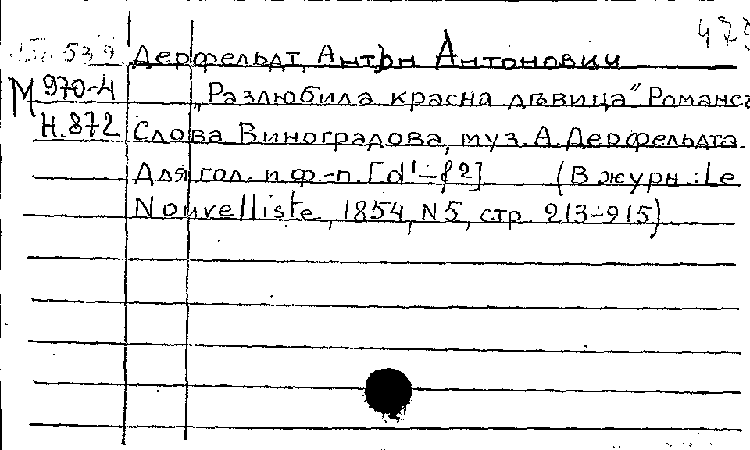 539 Дерфельдт, Антон Антонович
М 970-4 „Разлюбила красна дѣвица" Романс
Н.872 Слова Виноградова, муз. А. Дерфельдта.
Для гол. и ф.-п. [d¹-f²] (В журн.: Le
Nouvelliste, 1854, N5, стр. 213-915)